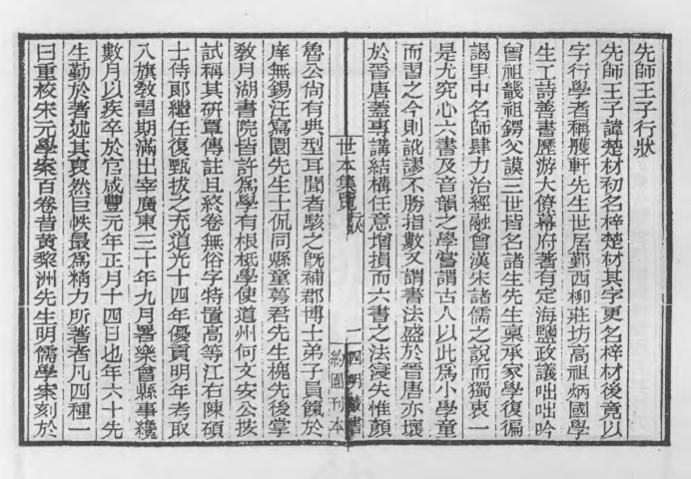 先師王子行狀
先師王子諱楚材初名梓楚材其字更名梓材後竟以
字行學者稱雘軒先生世居鄞西柳莊坊高祖炳國學
生工詩善書歷游大僚幕府著有定海鹽政議咄咄吟
曾祖祖鍔父謨三世皆名諸生先生稟承家學復徧
謁里中名師肆力治經融會漢宋諸儒之說而獨衷一
是尤究心六書及音韻之學嘗謂古人以此為小學童
而習之今則訛謬不勝指數又謂書法盛於晉唐亦壞
於晉唐蓋專講結構任意增損而六書之法寖失惟顏
世本集覽 行狀
一 四明叢書
約園刊本
魯公尚有典型耳聞者駭之旣補郡博士弟子員餼於
庠無錫汪寫園先生士侃同縣童萼君先生槐先後掌
敎月湖書院皆許為學有根柢學使道州何文安公按
試稱其研覃傳註且終卷無俗字特置高等江右陳碩
士侍郞繼任復甄拔之充道光十四年優貢明年考取
八旗敎習期滿出宰廣東三十年九月署樂會縣事纔
數月以疾卒於官咸豐元年正月十四日也年六十先
生勤於著述其裒然巨帙最為精力所著者凡四種一
曰重校宋元學案百卷昔黃黎洲先生明儒學案刻於